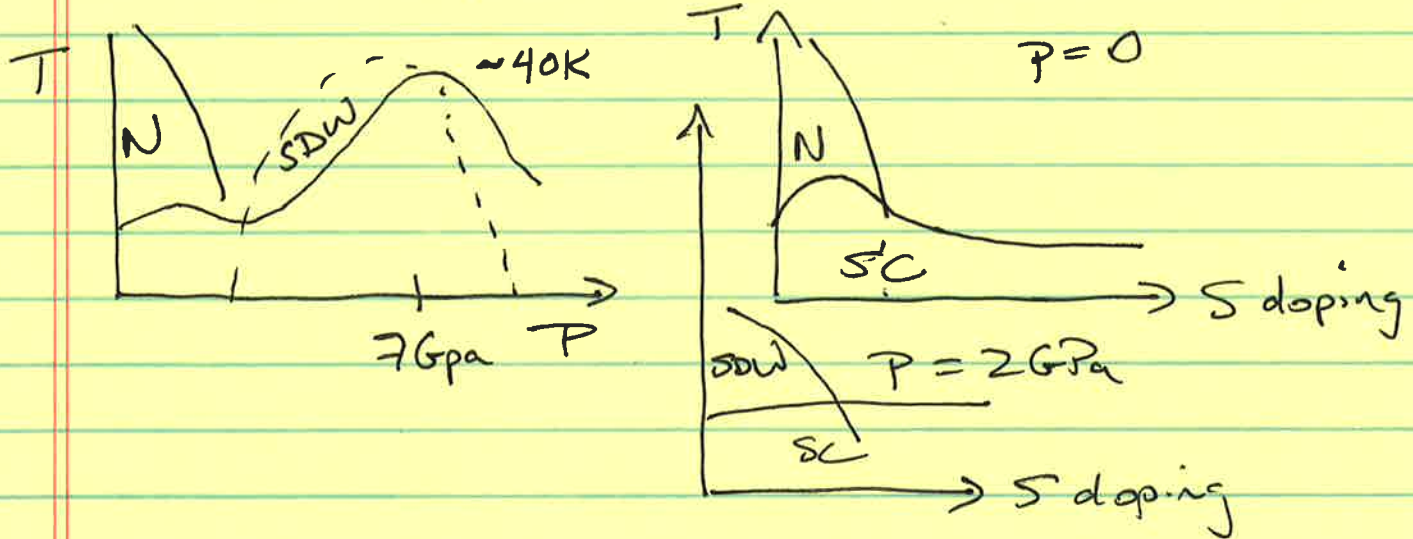 T
~40K
N
SDW
7Gpa
P
T
P=0
N
SC
S doping
SDW
P=2GPa
SC
S doping